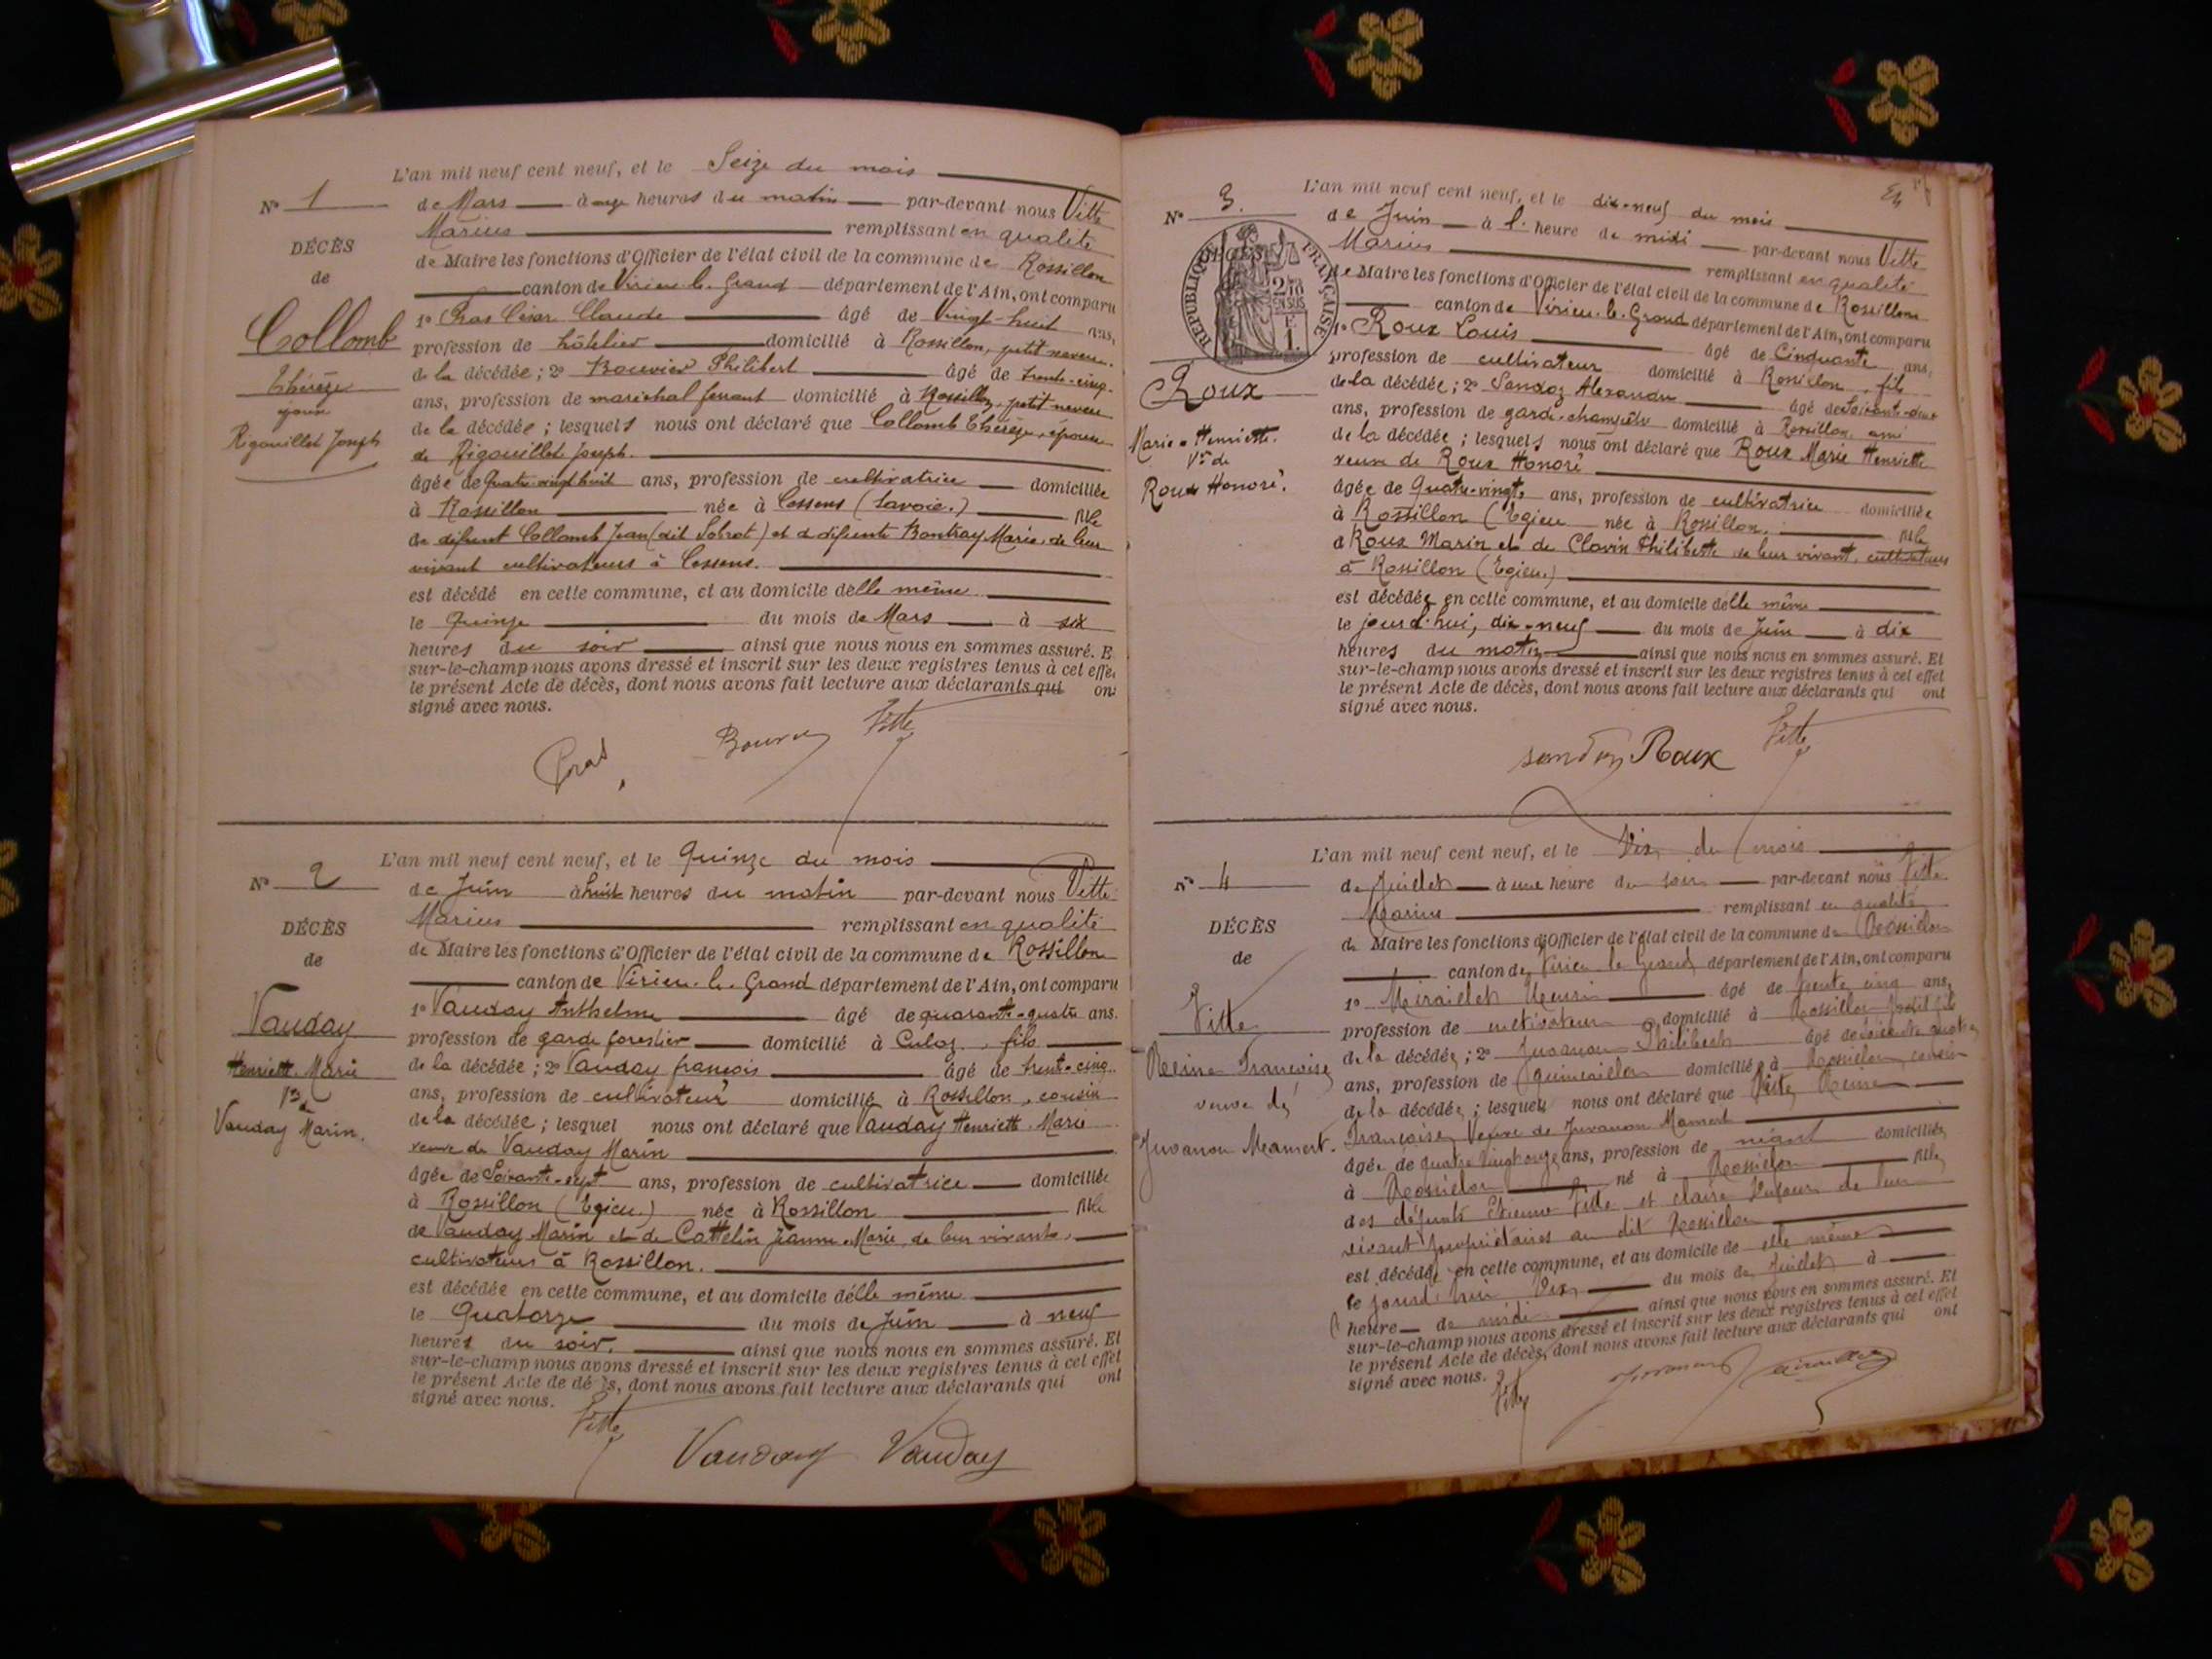 L'an mil neuf cent neuf, et le Seize du mois
N° 1
de Mars à onze heures du matin par-devant nous Vitte
Marius remplissant en qualité
DÉCÈS
de Maire les fonctions d'Officier de l'état civil de la commune de Rossillon
de
canton de Virieu-le-Grand département de l'Ain, ont comparu
Collomb
1° Gras César Claude âgé de Vingt-huit ans,
profession de hôtelier domicilié à Rossillon, petit neveu
Thérèze
de la décédée ; 2° Bouvier Philibert âgé de trente-cinq
épouse
ans, profession de maréchal ferrant domicilié à Rossillon, petit neveu
Rigouillet Joseph
de la décédée ; lesquels nous ont déclaré que Collomb Thérèze, épouse
de Rigouillet Joseph.
âgée de Quatre-vingt huit ans, profession de cultivatrice domiciliée
à Rossillon née à Cessens (Savoie.) fille
de défunt Collomb Jean (dit ) et de défunte Marie, de leur
vivant cultivateurs à Cessens.
est décédé en cette commune, et au domicile d'elle même
le Quinze du mois de Mars à six
heures du soir ainsi que nous nous en sommes assuré. E
sur-le-champ nous avons dressé et inscrit sur les deux registres tenus à cet effe
le présent Acte de décès, dont nous avons fait lecture aux déclarants qui on
signé avec nous.
Gras Bouvier Vitte
L'an mil neuf cent neuf, et le Quinze du mois
N° 2
de Juin à huit heures du matin par-devant nous Vitte
Marius remplissant en qualité
DÉCÈS
de Maire les fonctions d'Officier de l'état civil de la commune de Rossillon
de
canton de Virieu-le-Grand département de l'Ain, ont comparu
Vauday
1° Vauday Anthelme âgé de quarante-quatre ans.
profession de garde forestier domicilié à Culoz, fils
Henriette Marie
de la décédée ; 2° Vauday françois âgé de trente-cinq
Vve
ans, profession de cultivateur domicilié à Rossillon, cousin
Vauday Marin.
de la décédée ; lesquel nous ont déclaré que Vauday Henriette Marie
veuve de Vauday Marin
âgée de Soixante-sept ans, profession de cultivatrice domiciliée
à Rossillon (Egieu.) née à Rossillon fille
de Vauday Marin et de Cattelin Jeanne-Marie, de leur vivants,
cultivateurs à Rossillon.
est décédée en cette commune, et au domicile d'elle même
le Quatorze du mois de Juin à neuf
heures du soir. ainsi que nous nous en sommes assuré. Et
sur-le-champ nous avons dressé et inscrit sur les deux registres tenus à cet effet
le présent Acte de décès, dont nous avons fait lecture aux déclarants qui ont
signé avec nous.
Vitte
Vauday Vauday
L'an mil neuf cent neuf, et le dix-neuf du mois
N° 3.
de Juin à 1. heure de midi par-devant nous Vitte
Marius remplissant en qualité
DÉCÈS
RÉPUBLIQUE FRANÇAISE
2/10 EN SUS
F 1.
de Maire les fonctions d'Officier de l'état civil de la commune de Rossillon
canton de Virieu-le-Grand département de l'Ain, ont comparu
1° Roux Louis âgé de Cinquante ans,
profession de cultivateur domicilié à Rossillon, fils
Roux
de la décédée ; 2° Sandoz Alexandre âgé de Soixante-deux
ans, profession de garde-champêtre domicilié à Rossillon, ami
Marie-Henriette.
de la décédée ; lesquels nous ont déclaré que Roux Marie Henriette
Vve de
veuve de Roux Honoré
Roux Honoré.
âgée de Quatre-vingts ans, profession de cultivatrice domiciliée
à Rossillon (Egieu née à Rossillon. fille
d Roux Marin et de Clavin Philiberte de leur vivant, cultivateurs
à Rossillon (Egieu.)
est décédée en cette commune, et au domicile d'elle même
le jourd'hui, dix-neuf du mois de Juin à dix
heures du matin ainsi que nous nous en sommes assuré. Et
sur-le-champ nous avons dressé et inscrit sur les deux registres tenus à cet effet
le présent Acte de décès, dont nous avons fait lecture aux déclarants qui ont
signé avec nous.
Sandoz Roux Vitte
L'an mil neuf cent neuf, et le Dix du mois
N° 4
de Juillet à une heure du soir par-devant nous Vitte
Marius remplissant en qualité
DÉCÈS
de Maire les fonctions d'Officier de l'état civil de la commune de Rossillon
de
canton de Virieu le Grand département de l'Ain, ont comparu
Vitte
1° Miraillet Henri âgé de trente cinq ans,
profession de cultivateur domicilié à Rossillon petit fils
Reine Françoise
de la décédée ; 2° Juvanon Philibert âgé de soixante quatre
veuve de
ans, profession de quincailler domicilié à Rossillon, cousin
Juvanon Mamert.
de la décédée ; lesquels nous ont déclaré que Vitte Reine
Françoise, Veuve de Juvanon Mamert
âgée de quatre vingt onze ans, profession de néant domiciliée
à Rossillon né à Rossillon fille
des défunts Etienne Vitte et claire Dufour de leur
vivant propriétaires au dit Rossillon
est décédée en cette commune, et au domicile de elle même
le jourd'hui Dix du mois de Juillet à
heure de midi ainsi que nous nous en sommes assuré. Et
sur-le-champ nous avons dressé et inscrit sur les deux registres tenus à cet effet
le présent Acte de décès, dont nous avons fait lecture aux déclarants qui ont
signé avec nous.
Vitte Juvanon Miraillet